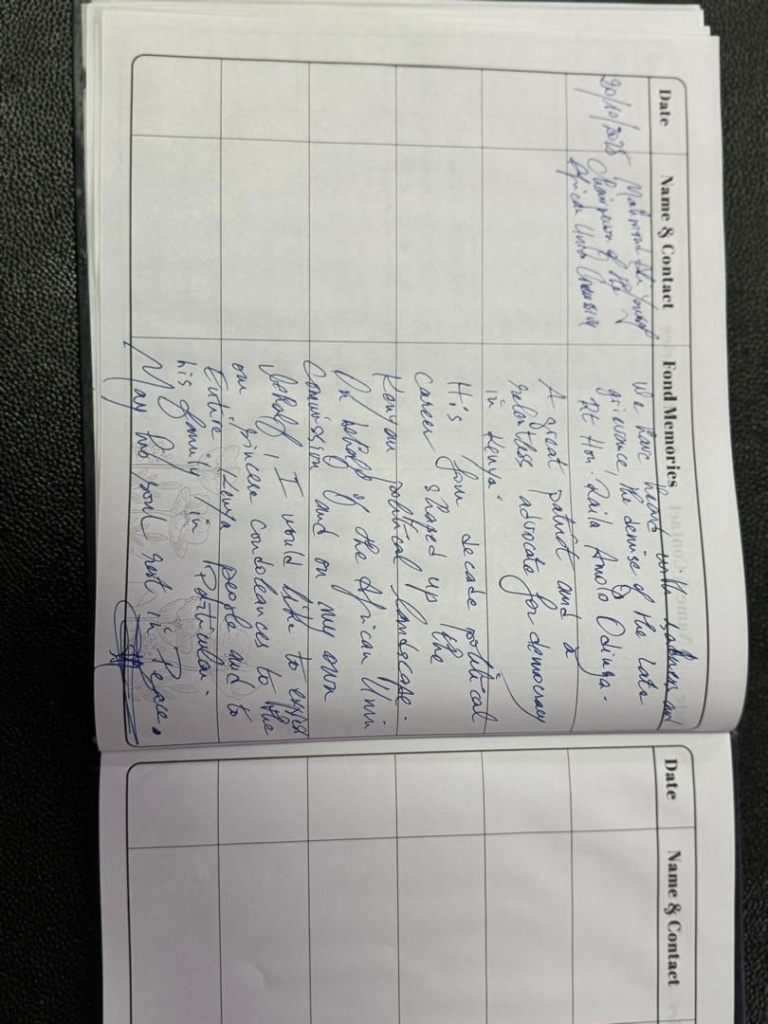 Date Name & Contact Fond Memories
20/10/2025 Mahmoud Ali Youssouf
Chairperson of the
African Union Commission
We have heard with sadness and
grievance, the demise of the late
Rt Hon. Raila Amolo Odinga.
A great patriot and a
relentless advocate for democracy
in Kenya.
His four decade political
career shaped up the
Kenyan political landscape.
On behalf of the African Union
Commission and on my own
behalf, I would like to express
our sincere condoleances to the
Entire Kenya people and to
his family in Particular.
May his soul rest in Peace.
Date Name & Contact